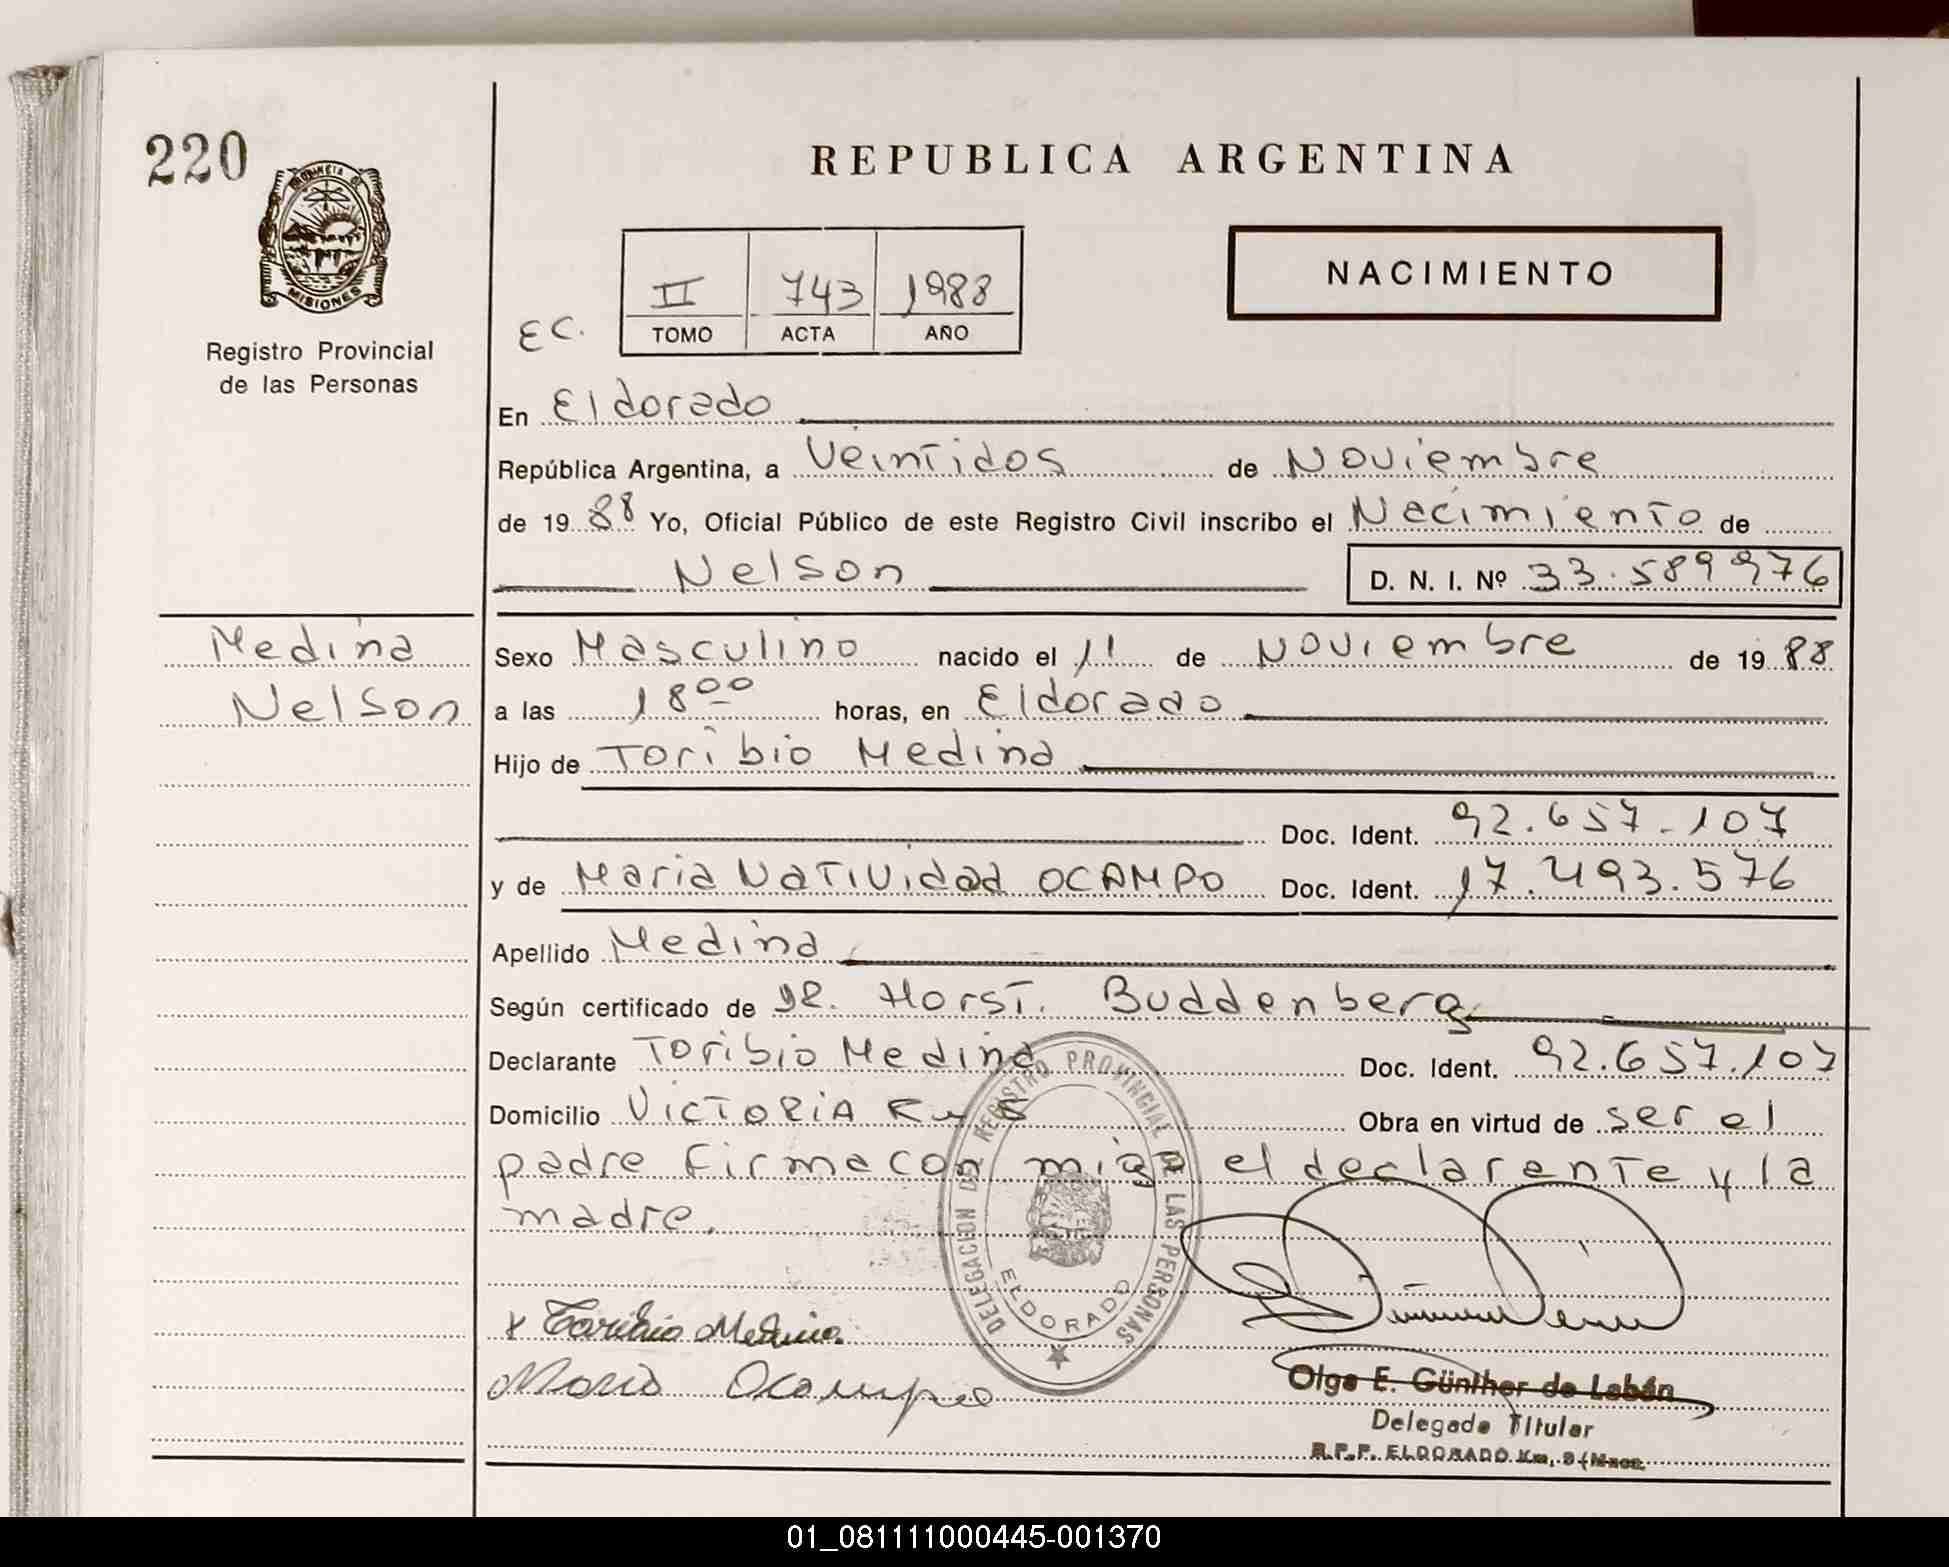 220
REPUBLICA ARGENTINA
PROVINCIA DE
MISIONES
Registro Provincial
de las Personas
NACIMIENTO
II 743 1988
TOMO ACTA AÑO
EC.
En Eldorado
República Argentina, a Veintidos de Noviembre
de 1988 Yo, Oficial Público de este Registro Civil inscribo el Nacimiento de
Nelson D. N. I. Nº 33.589976
Medina
Nelson
Sexo Masculino nacido el 11 de Noviembre de 1988
a las 18 00 horas, en Eldorado
Hijo de Toribio Medina
Doc. Ident. 92.657.107
y de Maria Natividad OCAMPO Doc. Ident. 17.493.576
Apellido Medina
Según certificado de DR. Horst. Buddenberg
Declarante Toribio Medina Doc. Ident. 92.657.107
Domicilio VICTORIA Obra en virtud de ser el
padre Firma con migo el declarante y la
madre.
DELEGACION DEL REGISTRO PROVINCIAL DE LAS PERSONAS
ELDORADO
x Toribio Medina.
Maria Ocampo
Olga E. Günther de Labán
Delegada Titular
R.P.P. ELDORADO Km. 9 (Mnes.
01_081111000445-001370